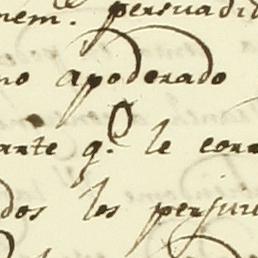 nemte. persuadid
no apoderado
arte q.e le corr
dos los perjui